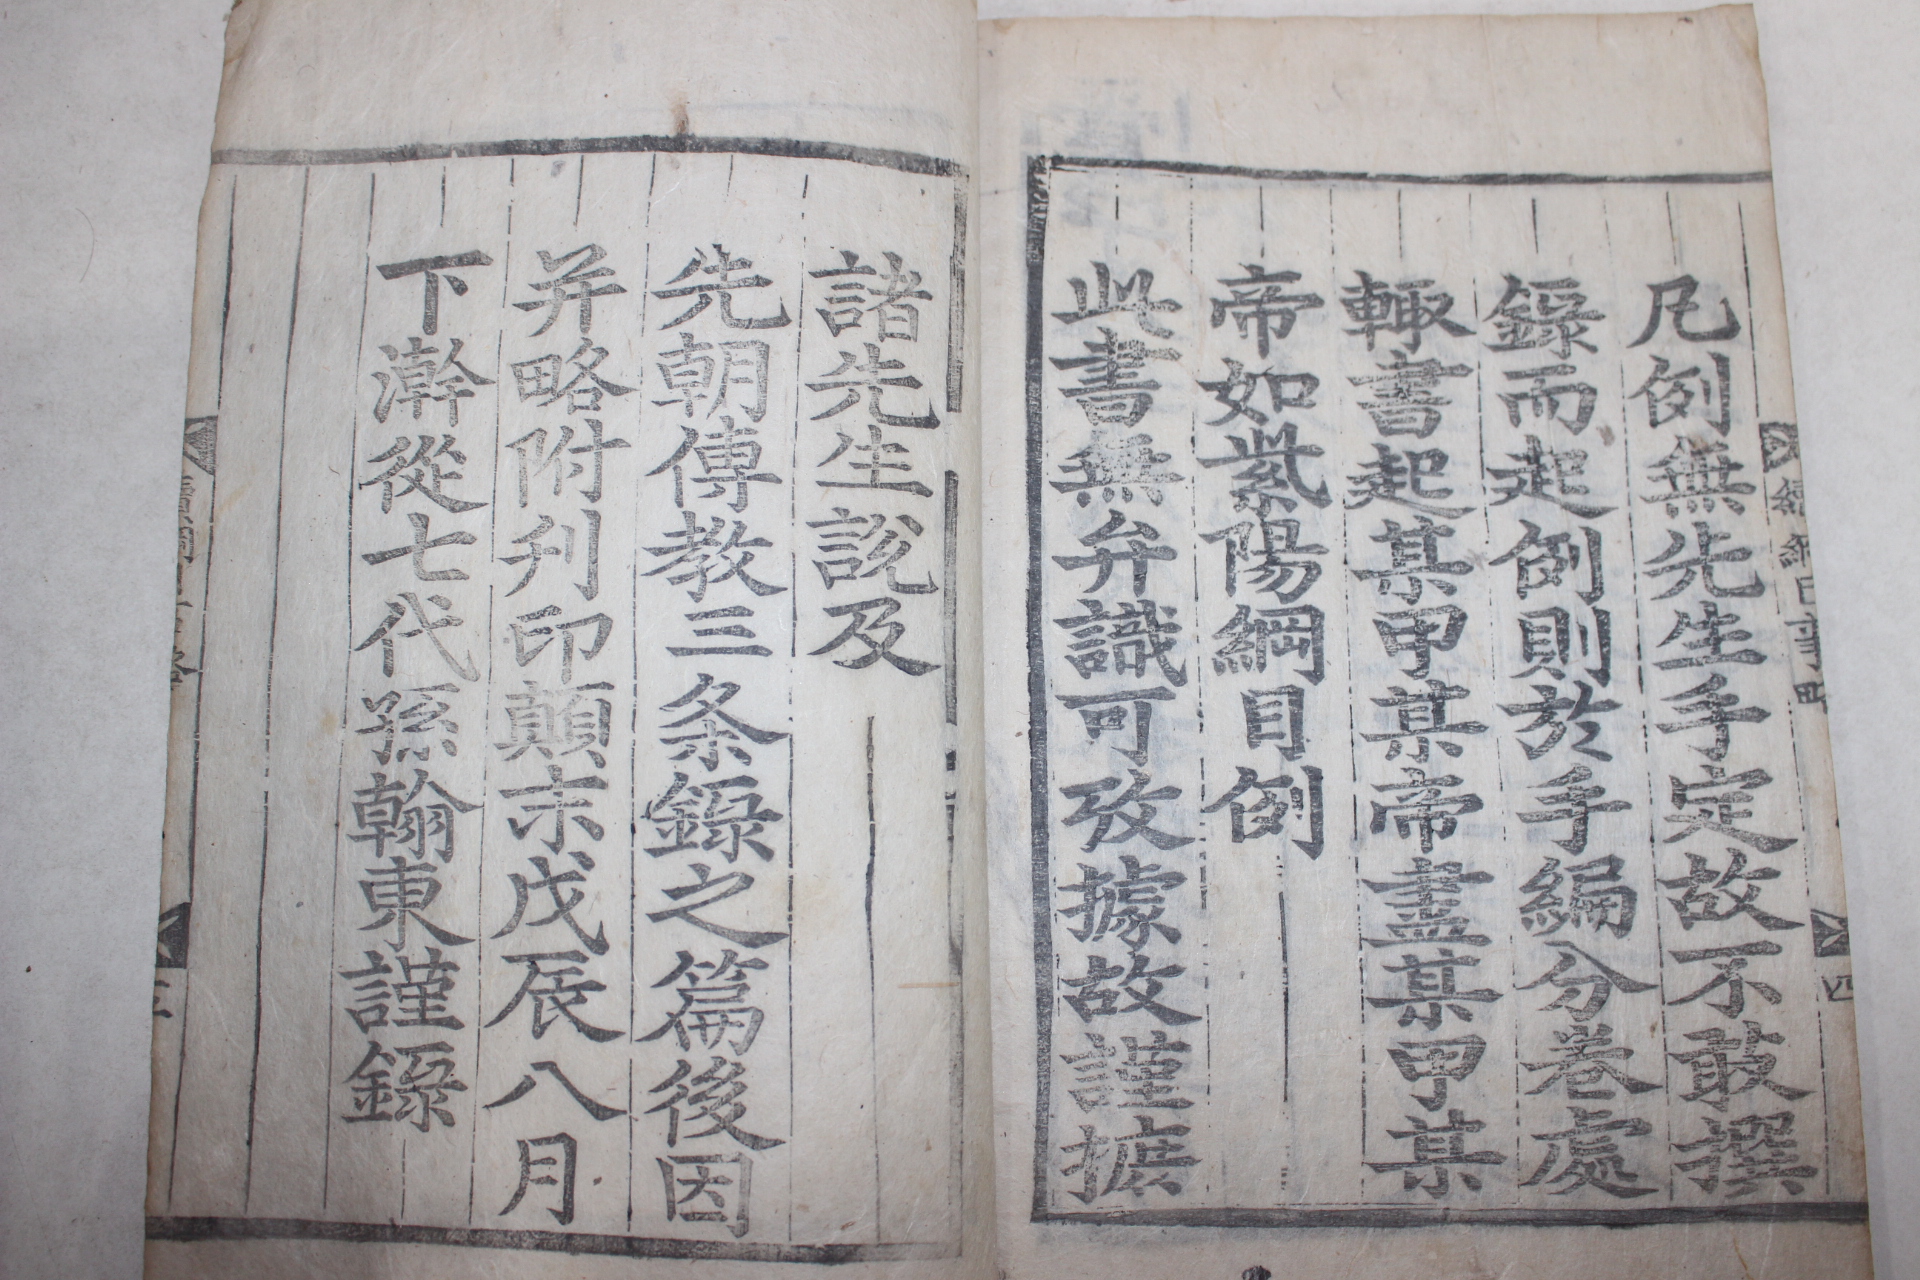 凡例無先生手定故不敢撰
錄而起例則於手編分卷處
輒書起某甲某帝盡某甲某
帝如紫陽綱目例
此書無弁識可攷據故謹摭
諸先生說及
先朝傳教三条錄之篇後因
并略附刊印顛末戊辰八月
下澣從七代孫翰東謹錄
四